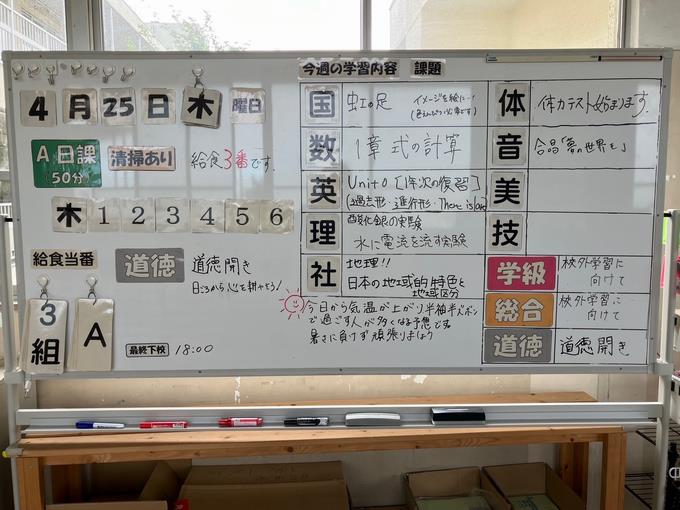 今週の学習内容 課題
4月25日木曜日
A日課
50分
清掃あり
給食3番です
木 1 2 3 4 5 6
給食当番
3組
A
道徳
道徳開き
日ごろから心を耕そう!
最終下校 18:00
国
虹の足
イメージを絵に…!
数
1章 式の計算
英
Unit0 [1年次の復習]
(過去形・進行形・There is/are)
理
酸化銀の実験
水に電流を流す実験
社
地理!!
日本の地域的特色と
地域区分
今日から気温が上がり半袖半ズボン
で過ごす人が多くなる予想です。
暑さに負けず頑張りましょう
体
体力テスト始まります.
音
合唱「夢の世界を」
美
技
学級
校外学習に
向けて
総合
校外学習に
向けて
道徳
道徳開き